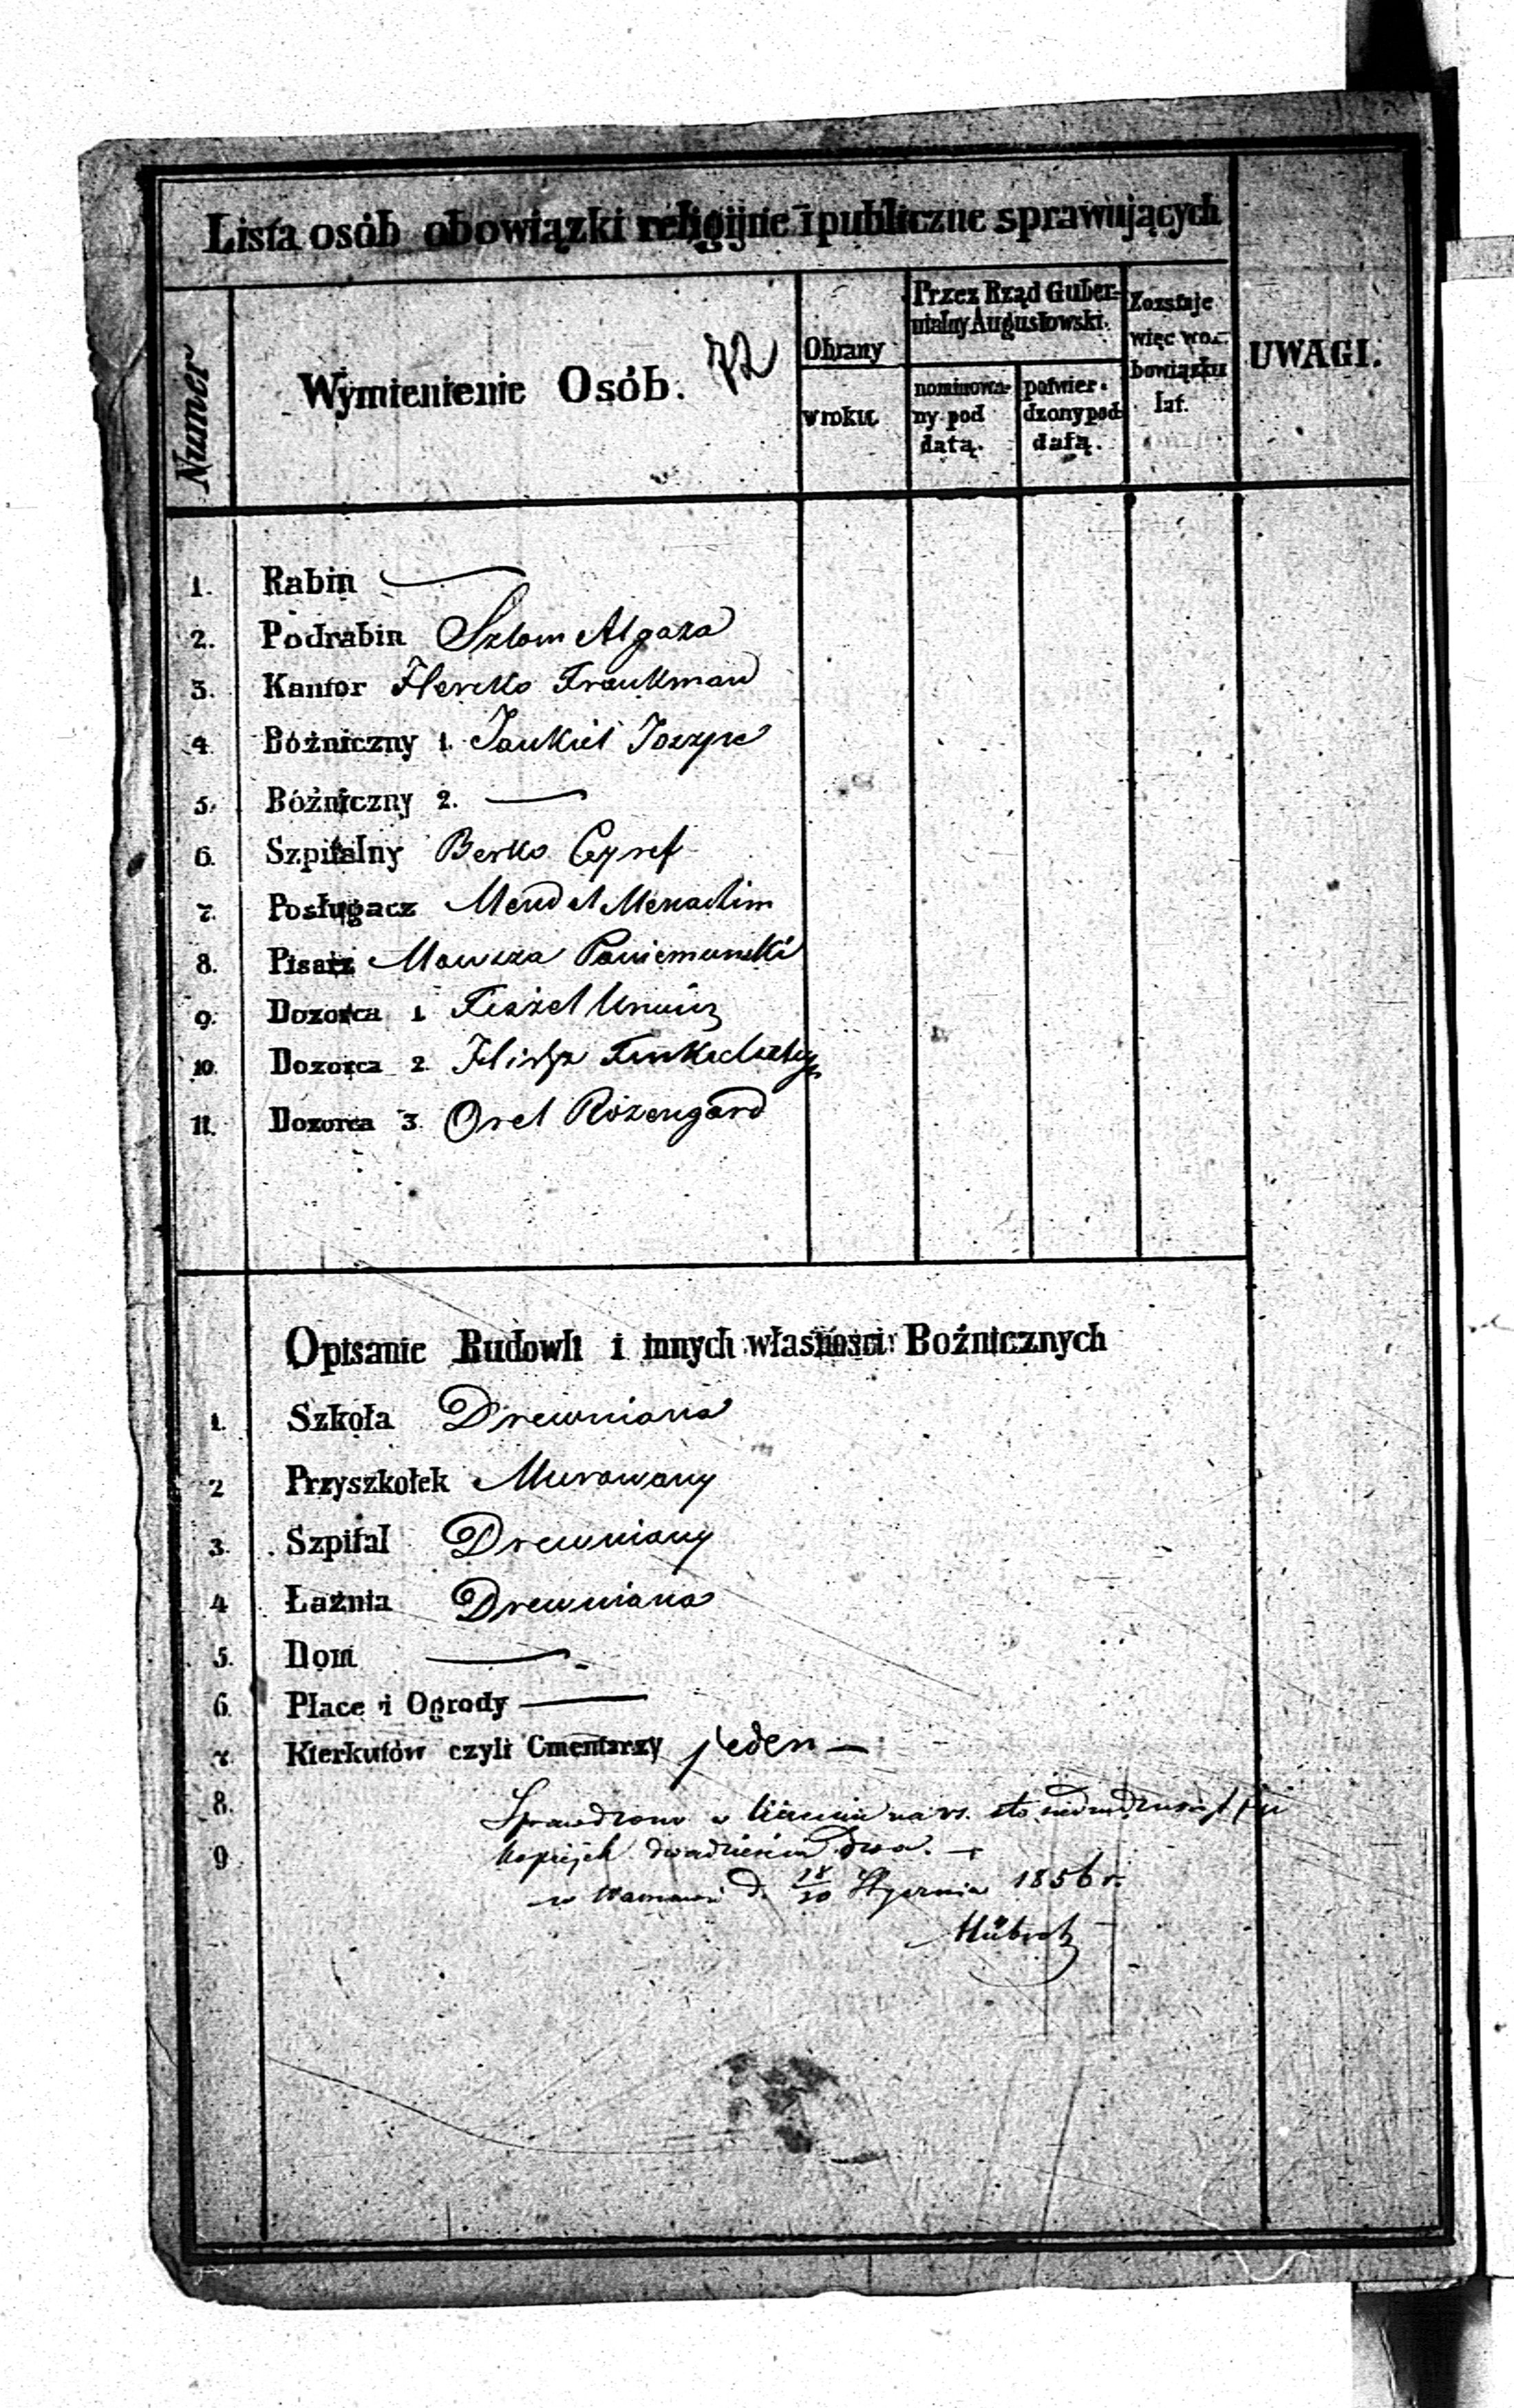 Lista osób obowiązki religijne i publiczne sprawujących
Numer
Wymienienie Osób.
72
Obrany
w roku.
Przez Rząd Guber-
nialny Augustowski.
nominowa-
ny pod
datą.
potwier-
dzony pod
datą.
Zozstaje
więc wo-
bowiązku
lat.
UWAGI.
1. Rabin —
2. Podrabin Szlom Algaza
3. Kantor Hercko Frankman
4. Bóżniczny 1. Jankiel
5. Bóżniczny 2. —
6. Szpitalny Berko
7. Posługacz Mendel Menachim
8. Pisarz Mowsza Poniemunski
9. Dozorca 1
10. Dozorca 2
11. Dozorca 3. Orel Rozengard
Opisanie Budowli i innych własności Bożnicznych
1. Szkoła Drewniana
2 Przyszkołek Murowany
3. Szpital Drewniany
4 Łaźnia Drewniana
5. Dom —
6. Place i Ogrody —
7. Kierkutów czyli Cmentarzy jeden —
8. Sprawdzono w na rs. sto
9 kopiejek dwadzieścia dwa. —
w d. 18/30 Stycznia 1856 r.